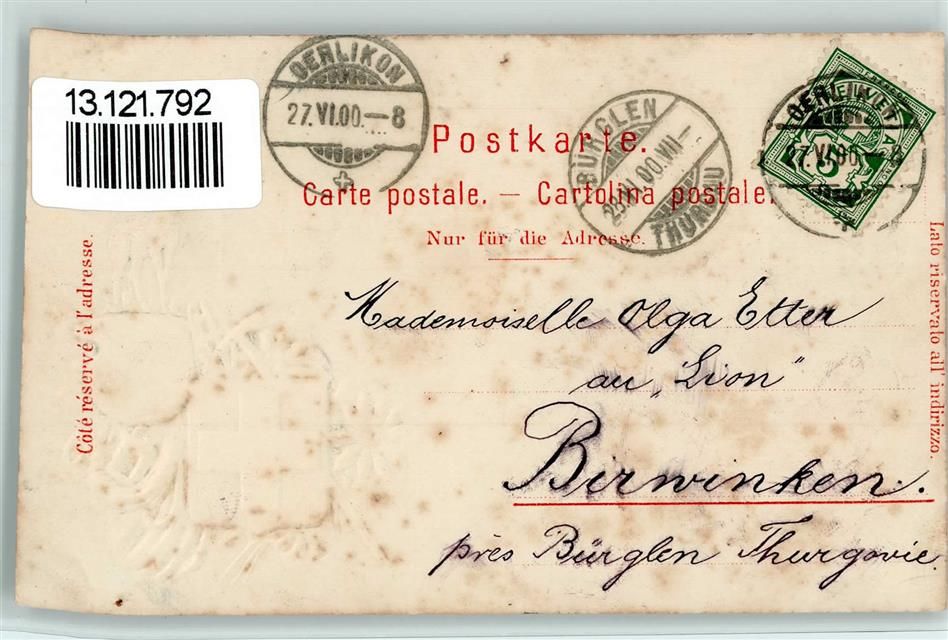 13.121.792
OERLIKON
27.VI.00.–8
BÜRGLEN
THURGAU
OERLIKON
27.VI.00.–8
5
Postkarte.
Carte postale. – Cartolina postale.
Nur für die Adresse.
Côté réservé à l'adresse.
Lato riservato all' indirizzo.
Mademoiselle Olga Etter
au „Lion"
Birwinken.
près Bürglen Thurgovie.